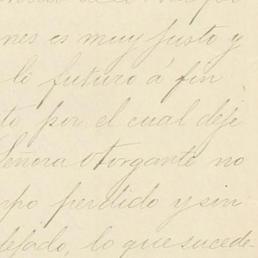 nes es muy justo y
li futuro á fin
to por el cual deje
Señora Otorgante no
po perdido y sin
lo que sucede-